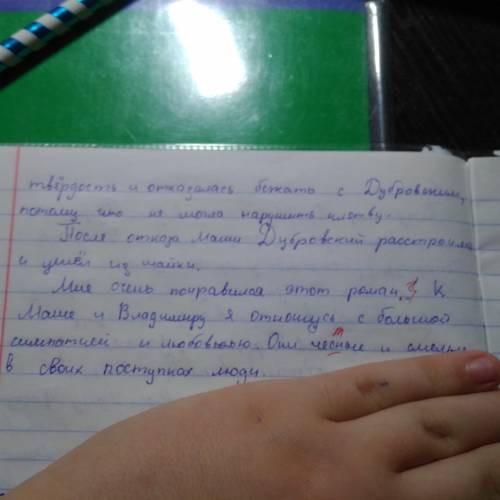 твёрдость и отказалась бежать с Дубровским,
потому что не могла нарушить клятву.
После отказа Маши Дубровский расстроился
и ушёл из шайки.
Мне очень понравился этот роман. К
Маше и Владимиру я отношусь с большой
симпатией и любовью. Они честные и смелые
в своих поступках люди.